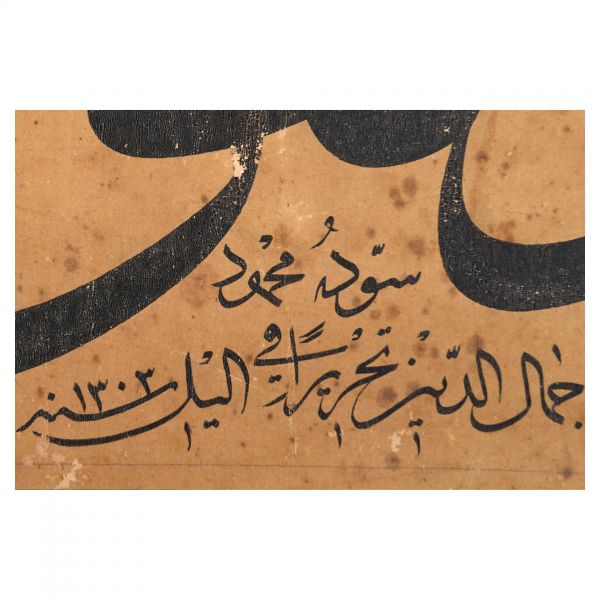 سوّدهُ محمود
جمال الدّين تحريراً في اليل سنه ١٣٠٣